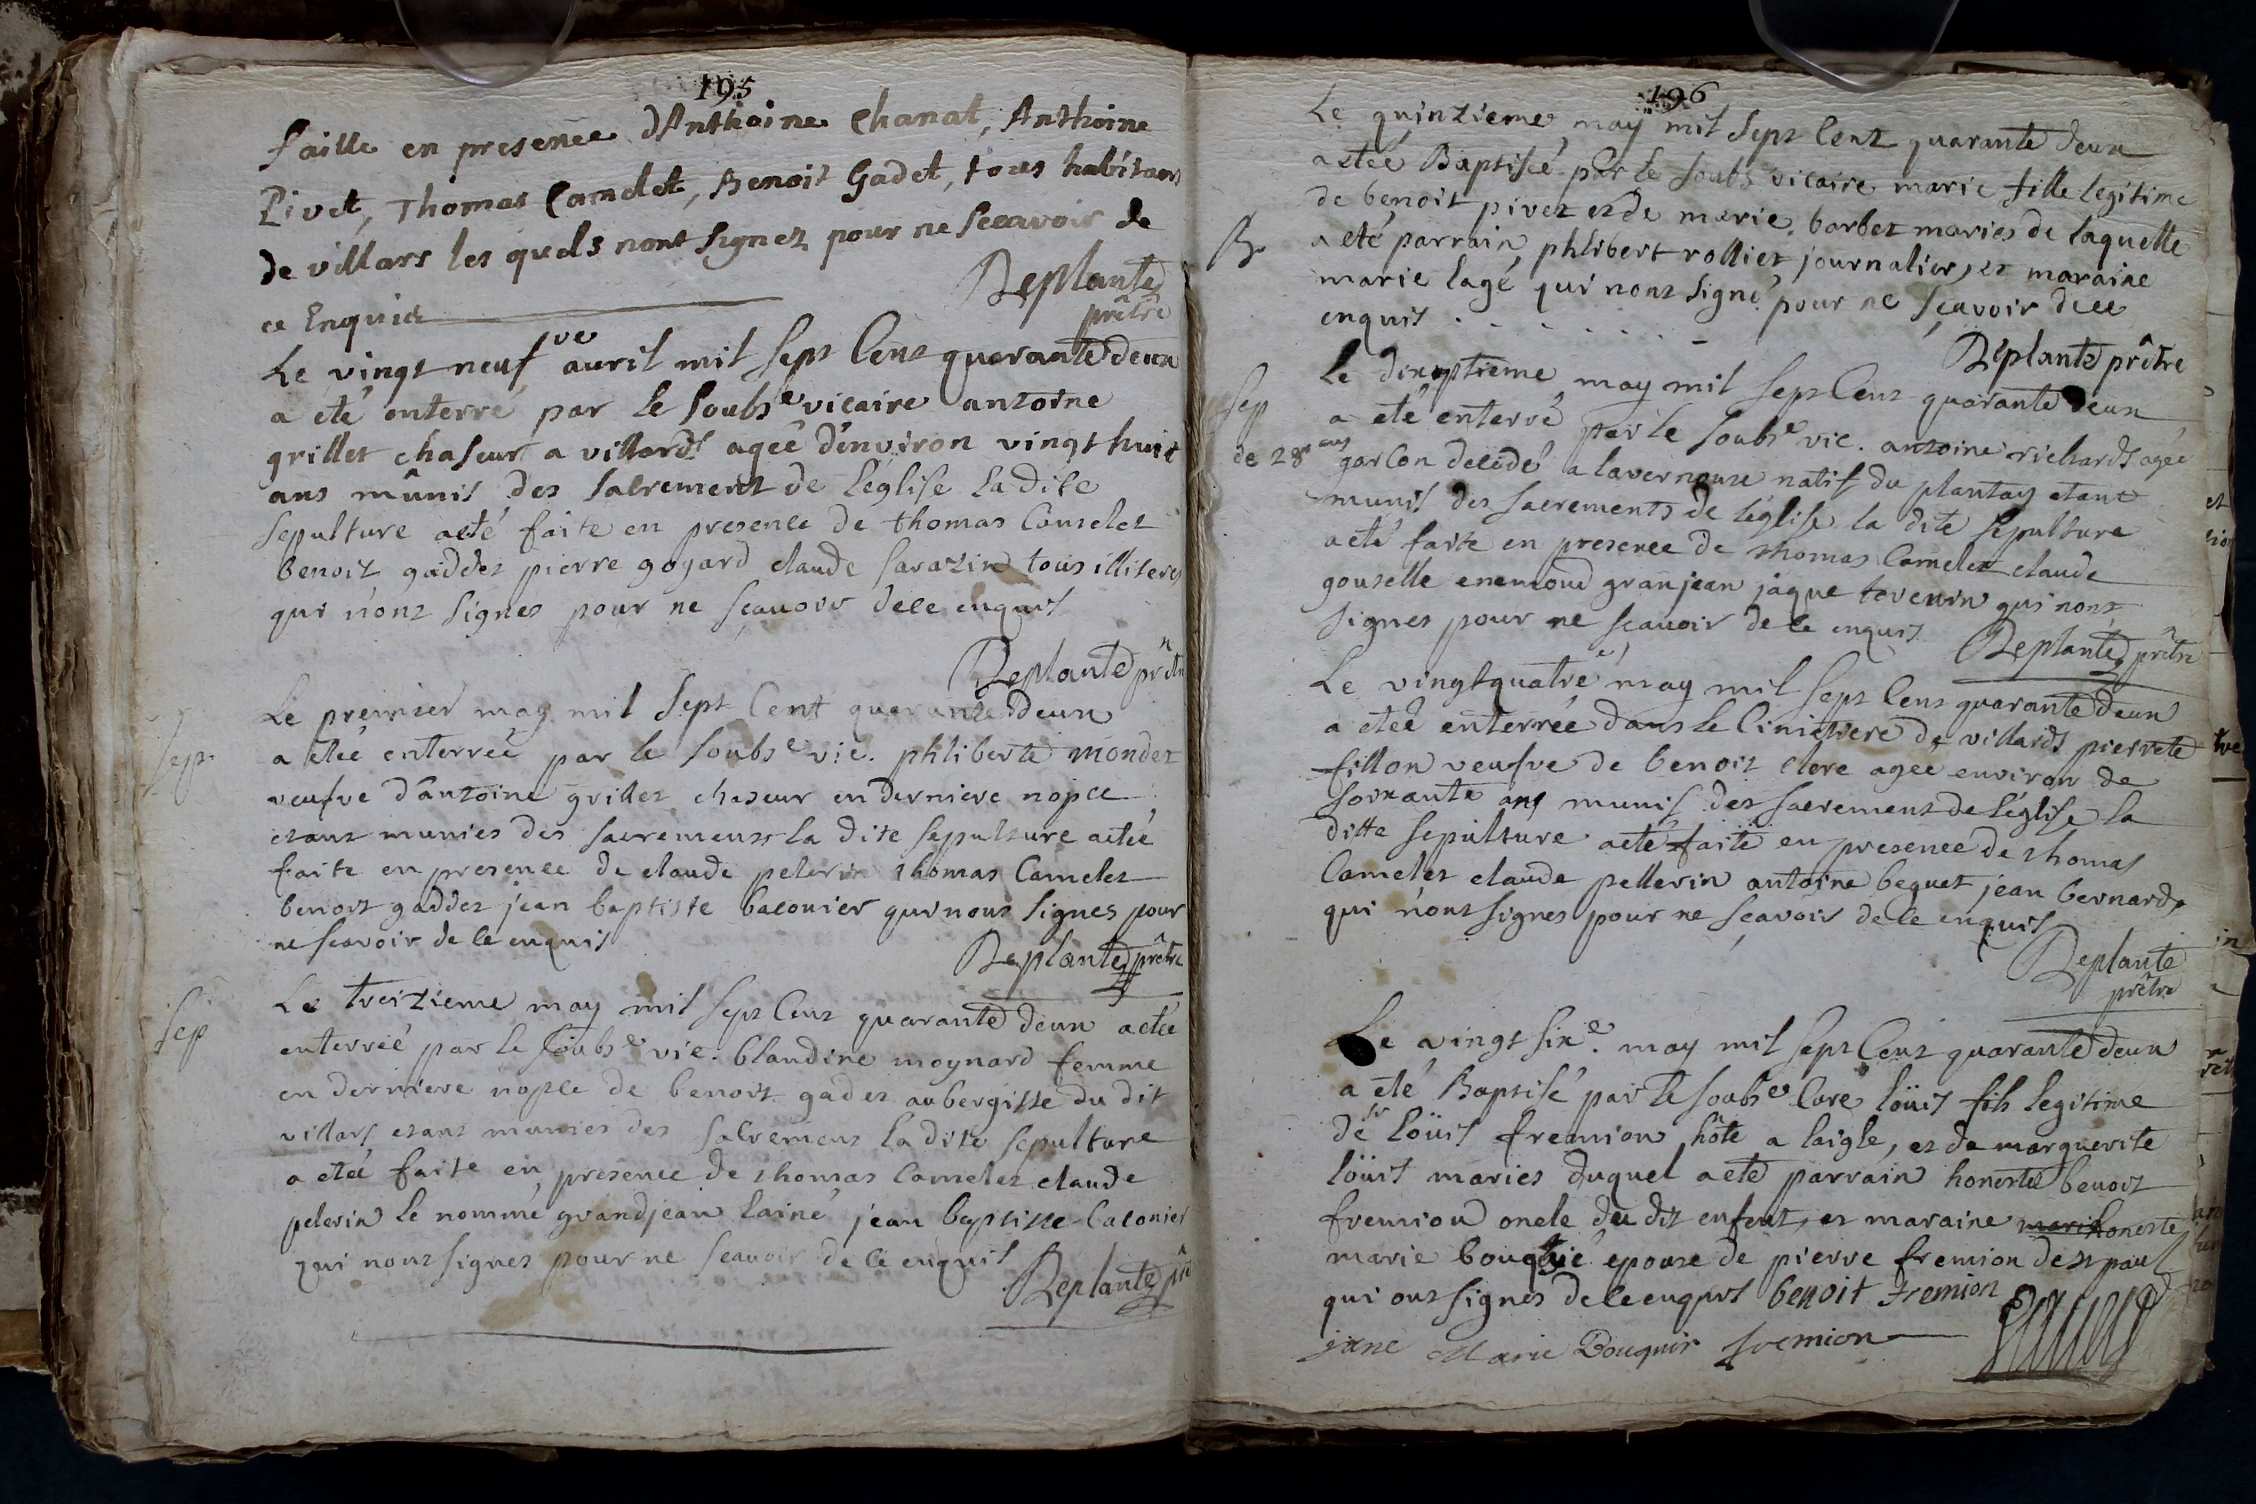 195
faille en presence d'Anthoine Chanat, Anthoine
Pivet, Thomas Camelet, Benoit Gadet, tous habitans
de villars les quels n'ont signez pour ne scavoir de
ce Enquis
Deplante
prêtre
Le vingt neufve avril mil sept Cent quarante deux
a eté enterré par le soubse vicaire antoine
grillet chaseur a villards ageé d'environ vingt huit
ans mûnis des sacrement de l'eglise ladite
sepulture aeté faite en presence de thomas Camelet
benoit gaddet pierre gogard claude sarazin tous illiteres
qui n'ont signes pour ne sçavoir dece enquis
Deplante prêtre
Le premier may mil sept Cent quarante deux
Sep.
a eteé enterreé par le soubse vic. phliberte mondet
veufve d'antoine grillet chaseur en derniere nopce
etant munies des sacrements la dite sepulture aeteé
faite en presence de claude pelerin thomas Camelet
benoit gaddet jean baptiste baconier qui n'ont signes pour
ne scavoir de ce enquis
Deplante prêtre
Sep
Le treizieme may mil sept Cent quarante deux aeteé
enterreé par le soubse vic. blandine moynard femme
en derniere nopce de benoit gadet aubergiste du dit
villars etant munies des sacrement ladite sepulture
a eteé faite en presence de thomas Camelet claude
pelerin le nommé grandjean lainé jean baptiste baconier
qui n'ont signes pour ne scavoir de ce enquis
Deplante prê
196
Le quinzieme may mil sept Cent quarante deux
a eteé Baptisée par le soubs vicaire marie fille legitime
de benoit pivet et de marie barbet mariés de laquelle
B.
a eté parrain phlibert rolliet journalier, et maraine
marie lagé qui n'ont signé pour ne sçavoir dece
enquis
Deplante prêtre
Sep
Le dixseptieme may mil sept Cent quarante deux
a eté enterré par le soubse vic. antoine richards ageé
de 28 ans
garcon decedé a lavernouze natif du plantay etant
munis des sacrements de l'eglise la dite sepulture
a eté faite en presence de thomas Camelet claude
gouselle enemond granjean jaque tevenin qui n'ont
signes pour ne scavoir de ce enquis
Deplante prêtre
Le vingtquatre may mil sept Cent quarante deux
a eteé enterrée dans le Cimetiere de villards pierrete
fillon veufve de benoit clere agee environ de
soixante ans munis des sacrement de l'eglise la
ditte sepulture aeté faite en presence de thomas
Camelet claude pellerin antoine bequet jean bernard
qui n'ont signes pour ne sçavoir de ce enquis
Deplante
prêtre
Le vingt sixe. may mil sept Cent quarante deux
a eté Baptisé par le soubse Curé loüis fils legitime
de sr loüis fremion hôte a laigle, et de marguerite
loüis mariés duquel aeté parrain honeste benoit
fremion oncle du dit enfent, et maraine mari honeste
marie bouquié epouse de pierre fremion de st paul
qui ont signés de ce enquis benoit fremion
jane Marie Bouquir fremion